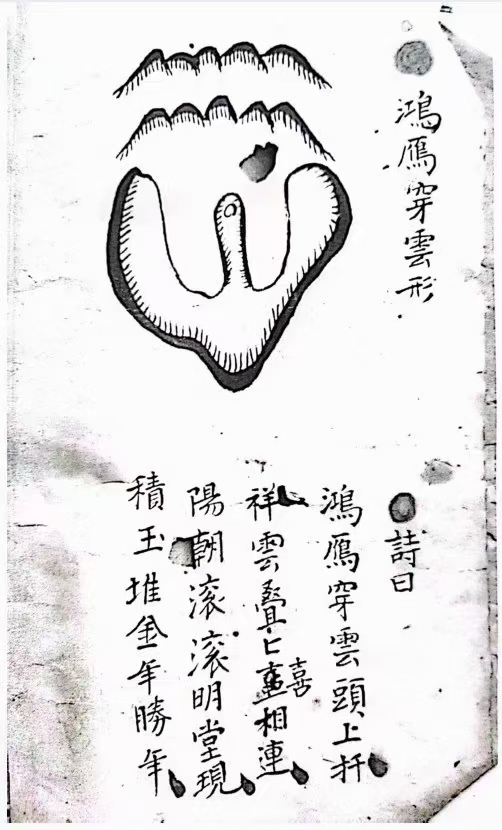 鴻鴈穿雲形
詩曰
鴻鴈穿雲頭上扦
祥雲疊匕喜相連
陽朝滾滾明堂現
積玉堆金年勝年